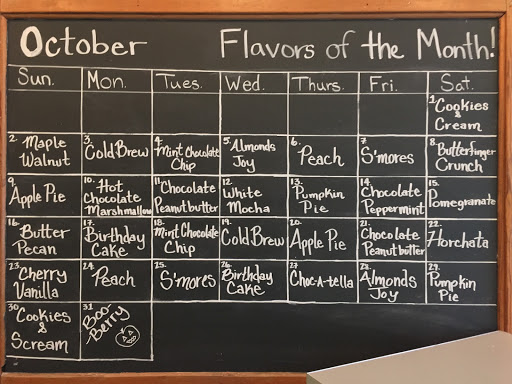 October Flavors of the Month!
Sun. Mon. Tues. Wed. Thurs. Fri. Sat.
1. Cookies & Cream
2. Maple Walnut
3. Cold Brew
4. Mint Chocolate Chip
5. Almonds Joy
6. Peach
7. S'mores
8. Butterfinger Crunch
9. Apple Pie
10. Hot Chocolate Marshmallow
11. Chocolate Peanut butter
12. White Mocha
13. Pumpkin Pie
14. Chocolate Peppermint
15. Pomegranate
16. Butter Pecan
17. Birthday Cake
18. Mint Chocolate Chip
19. Cold Brew
20. Apple Pie
21. Chocolate Peanut butter
22. Horchata
23. Cherry Vanilla
24. Peach
25. S'mores
26. Birthday Cake
27. Choc-A-tella
28. Almonds Joy
29. Pumpkin Pie
30. Cookies & Scream
31. Boo-Berry